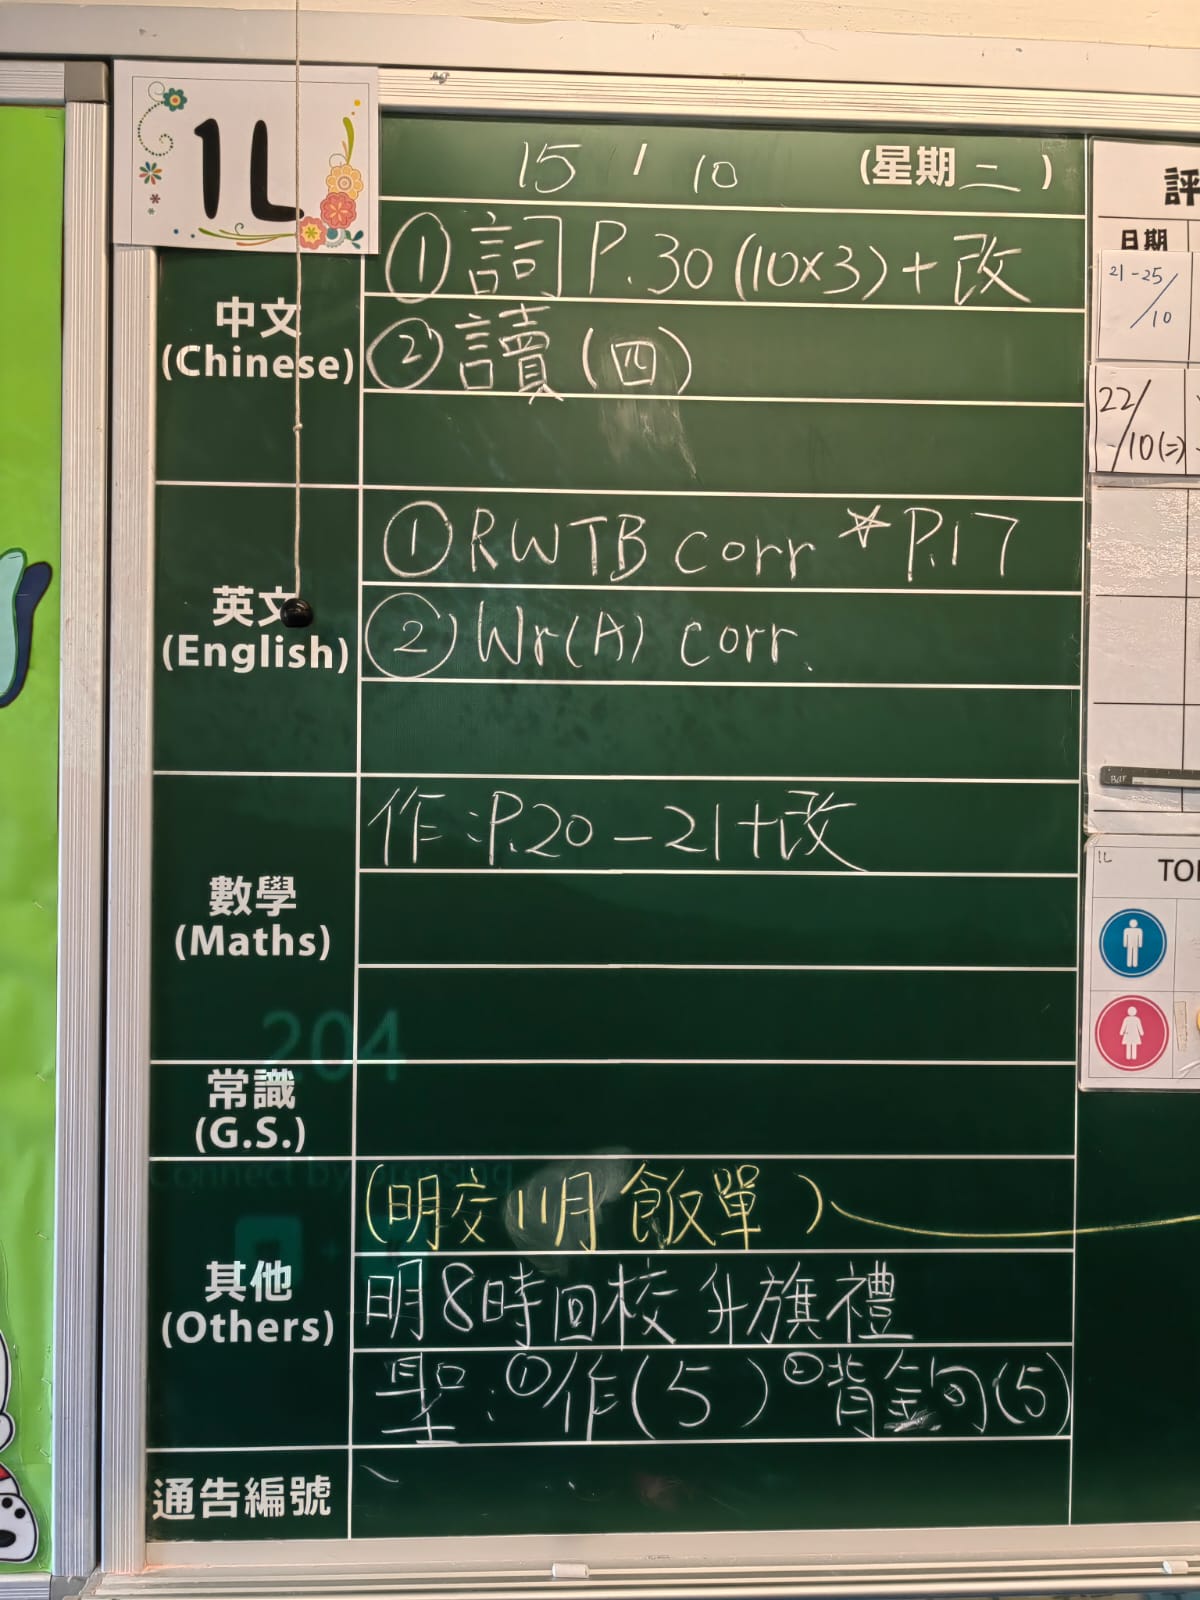 1L
15 / 10 (星期二)
中文
(Chinese)
① 詞 P.30 (10×3) + 改
② 讀 (四)
英文
(English)
① RWTB corr ☆ P.17
② Wr(A) corr.
數學
(Maths)
作:P.20 - 21 + 改
204
常識
(G.S.)
connect by pressing
其他
(Others)
(明交11月飯單)
明8時回校升旗禮
聖:①作(5) ②背金句(5)
通告編號
評
日期
21-25/
/10
22/
/10(二)
1L
TOI